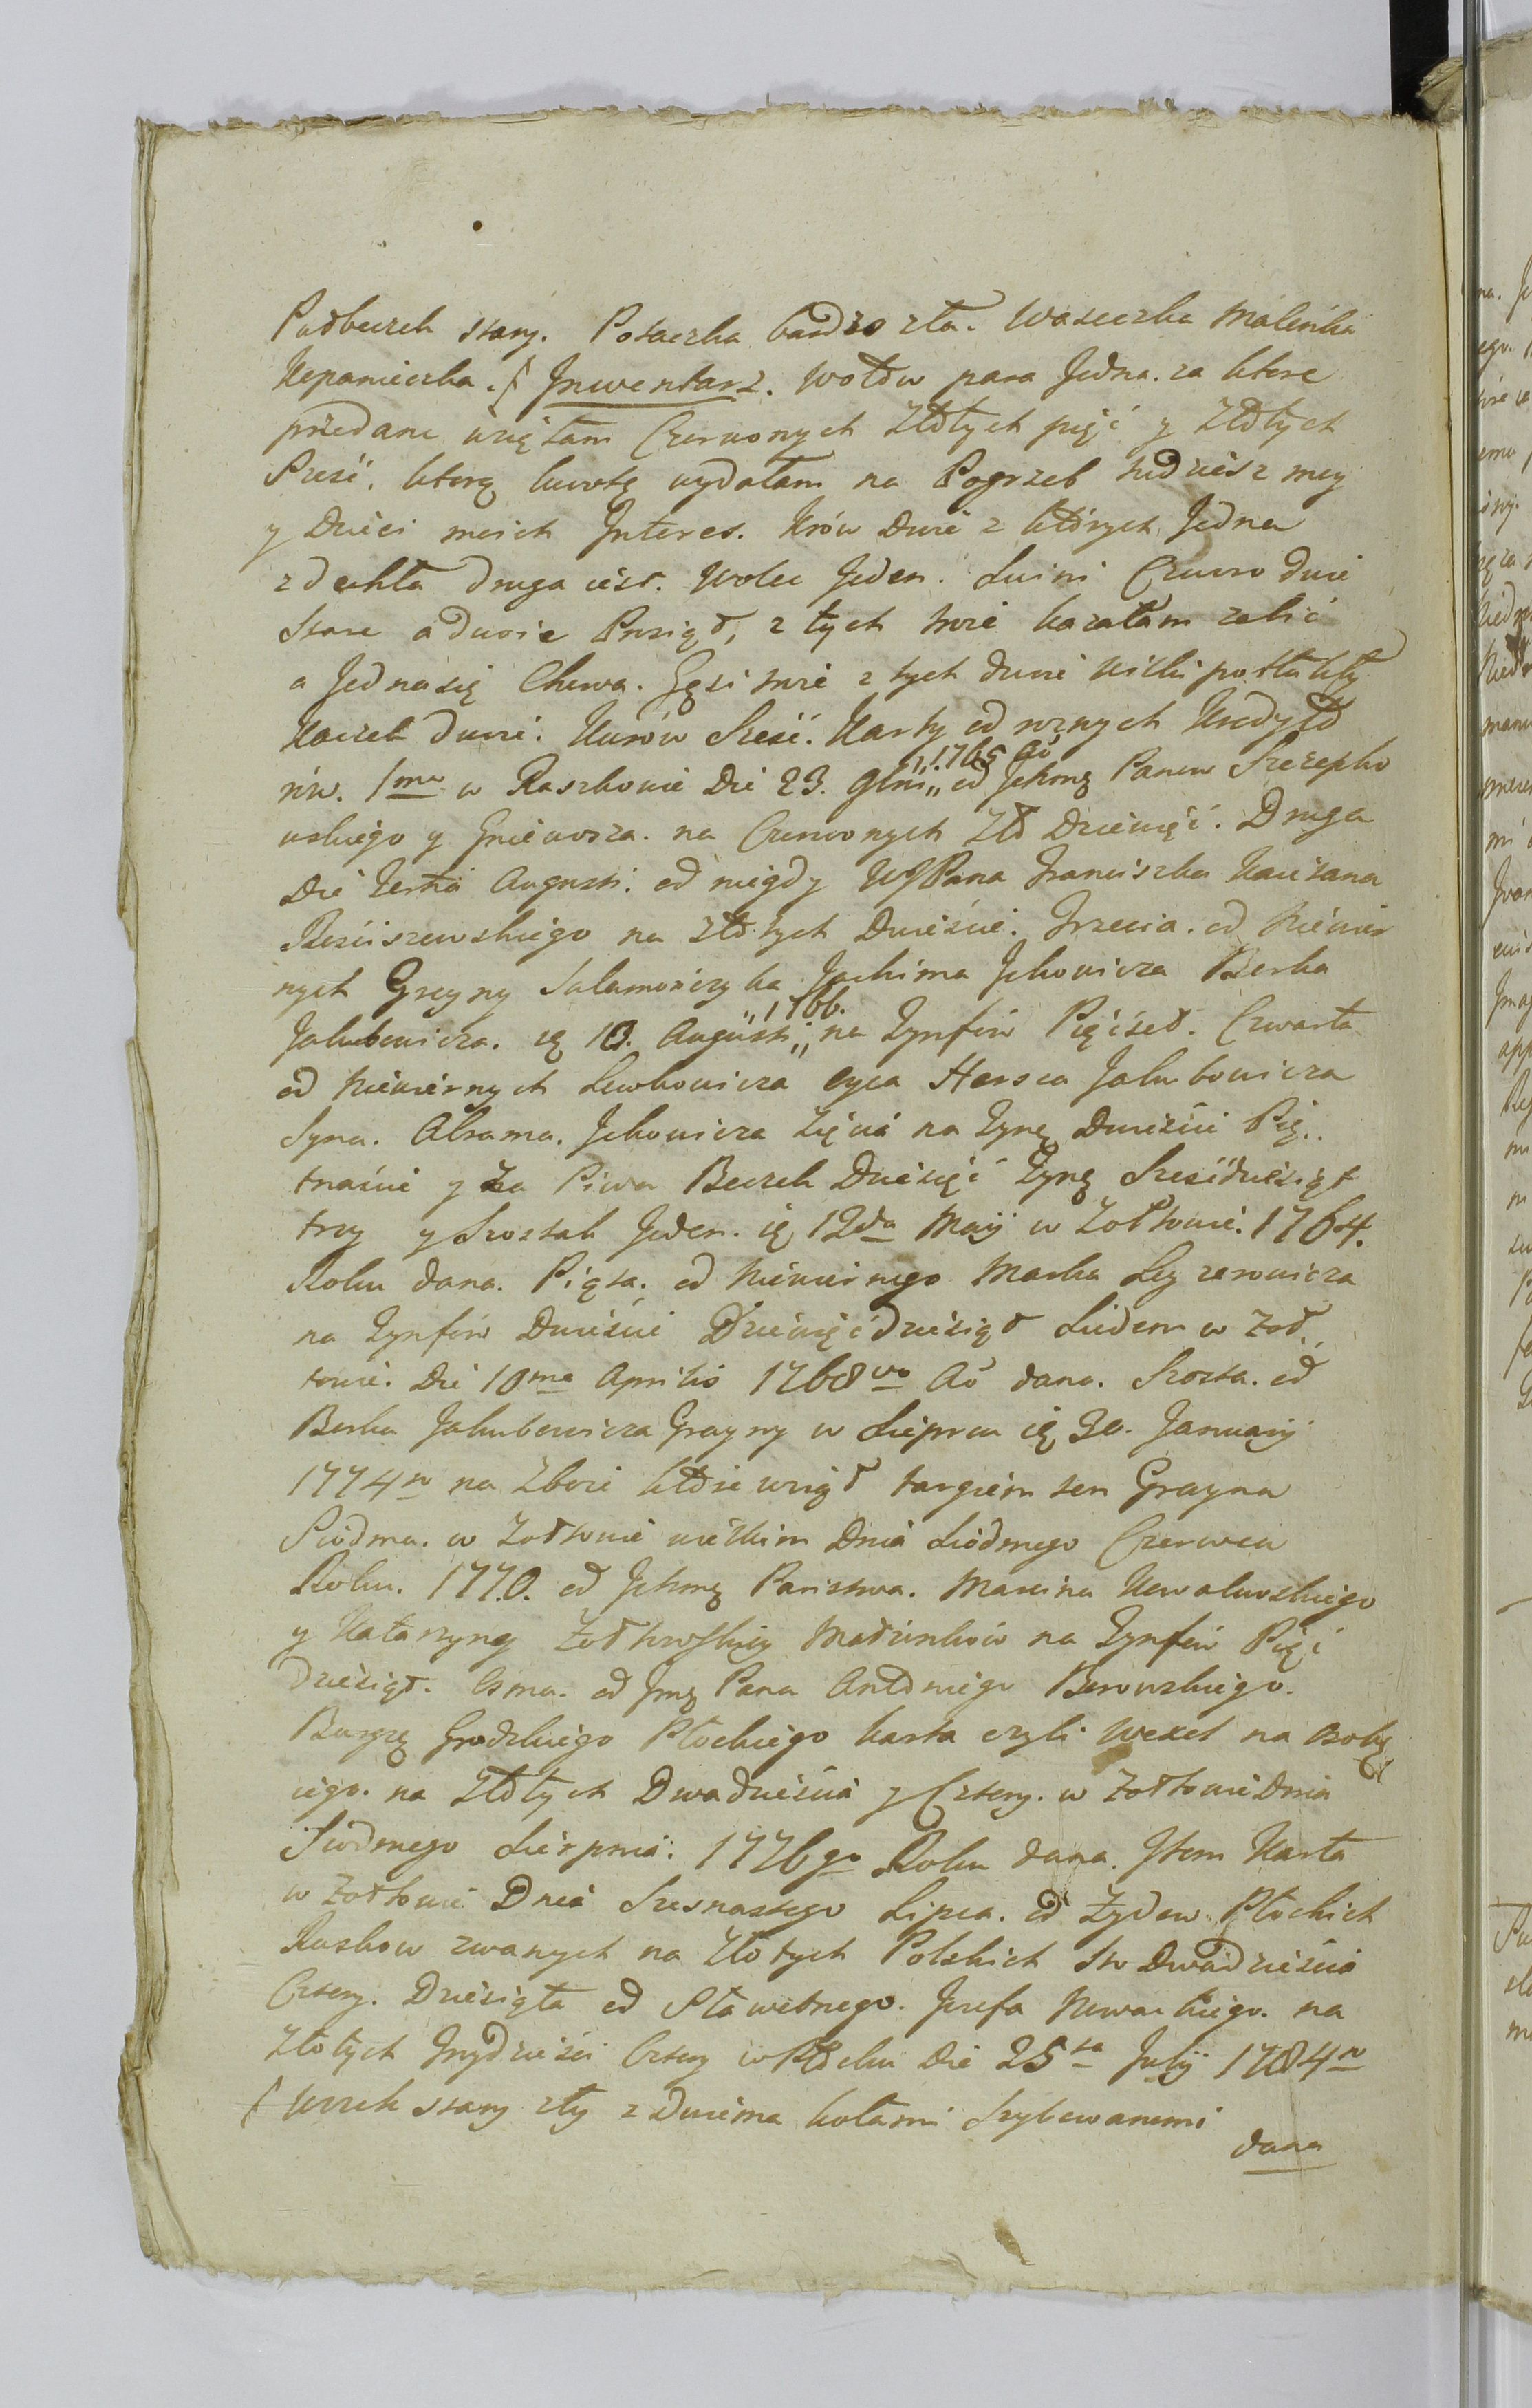 Podbeczek stary. Potaczka bardzo zła. Waseczka Malenka
Kopanieczka. ⌠ Inwentarz. Wołów para Jedna. za ktore
przedane wzięłam Czerwonych Złłtych pięć y Złłtych
Szesć. ktorą kwotę wydałam na Pogrzeb tudziesz moy
y Dzieci moich Interes. Krów Dwie z których Jedna
zdechła druga iest. Wolec Jeden. Swini Czworo dwie
stare a dwoie Prosiąt, z tych troie kazałam zabić
a Jedna się Chowa. Gęsi troie z tych dwie Wilki potłukły
Kaczek dwie. Kurów Szesć. Karty od roznych Kredyto
rów. 1ma w Raszkowie Die 23. 9bris „1765 Ao od Jchmę Panow Szczepko
wskiego y Gniewosza. na Czerwonych Zło Dziewięć. Druga
Die Augusti. od niegdy WJPana Franciszka Kaietana
Rościszewskiego na Złłtych Dwieście. Trzecia. od Niewier
nych Salamończyka Jachima Jckowicza Berka
Jakubowicza. 13. Augusti „1766. na Tynfów Pięćset. Czwarta
od Niewiernych Lewkowicza oyca Hersca Jakubowicza
Syna. Abrama. Jckowicza Zięcia na Tynę Dwieście Pię..
tnaście y Za Piwa Beczek Dziesięć Tynę Szescdziesiąt
trzy y Szostak Jeden. 12da Maij w Zołtowie. 1764.
Roku dana. Piąta. od Niewiernego Marka Leyzerowicza
na Tynfów Dwieście Dziewięćdziesiąt Siedem w Zoł..
towie. Die 10ma Aprilis 1768vo Ao dana. Szosta. od
Berka Jakubowicza Grayny w Sieprcu 30. Januarij
1774to na Zboże wziął targiem ten Grayna
Siodma. w Zołtowie wielkim Dnia Siódmego Czerwca
Roku. 1770. od Jchmę Państwa. Marcina Kowalewskiego
y Katarzyny Małżonków na Tynfów Pięć
dziesiąt. Osma. od Jmę Pana Antoniego Borowskiego.
Burgrę Grodzkiego Płockiego karta czyli Wexel na osobę
iego. na Złłtych Dwadzieścia y Cztery. w Zołtowie Dnia
Siodmego Sierpnia. 1776go Roku dana. Item Karta
w Zołtowie Dnia Szesnastego Lipca. od Zydow Płockich
Ruskow zwanych na Złotych Polskich Sto Dwadzieścia
Cztery. Dziesiąta od Sławetnego. Jozefa Nowackiego. na
Złotych Trzydzieści Cztery w Płocku Die 25ta Julij 1784to
⌠ Wozek stary zły z dwiema kołami Szybowanemi
dana